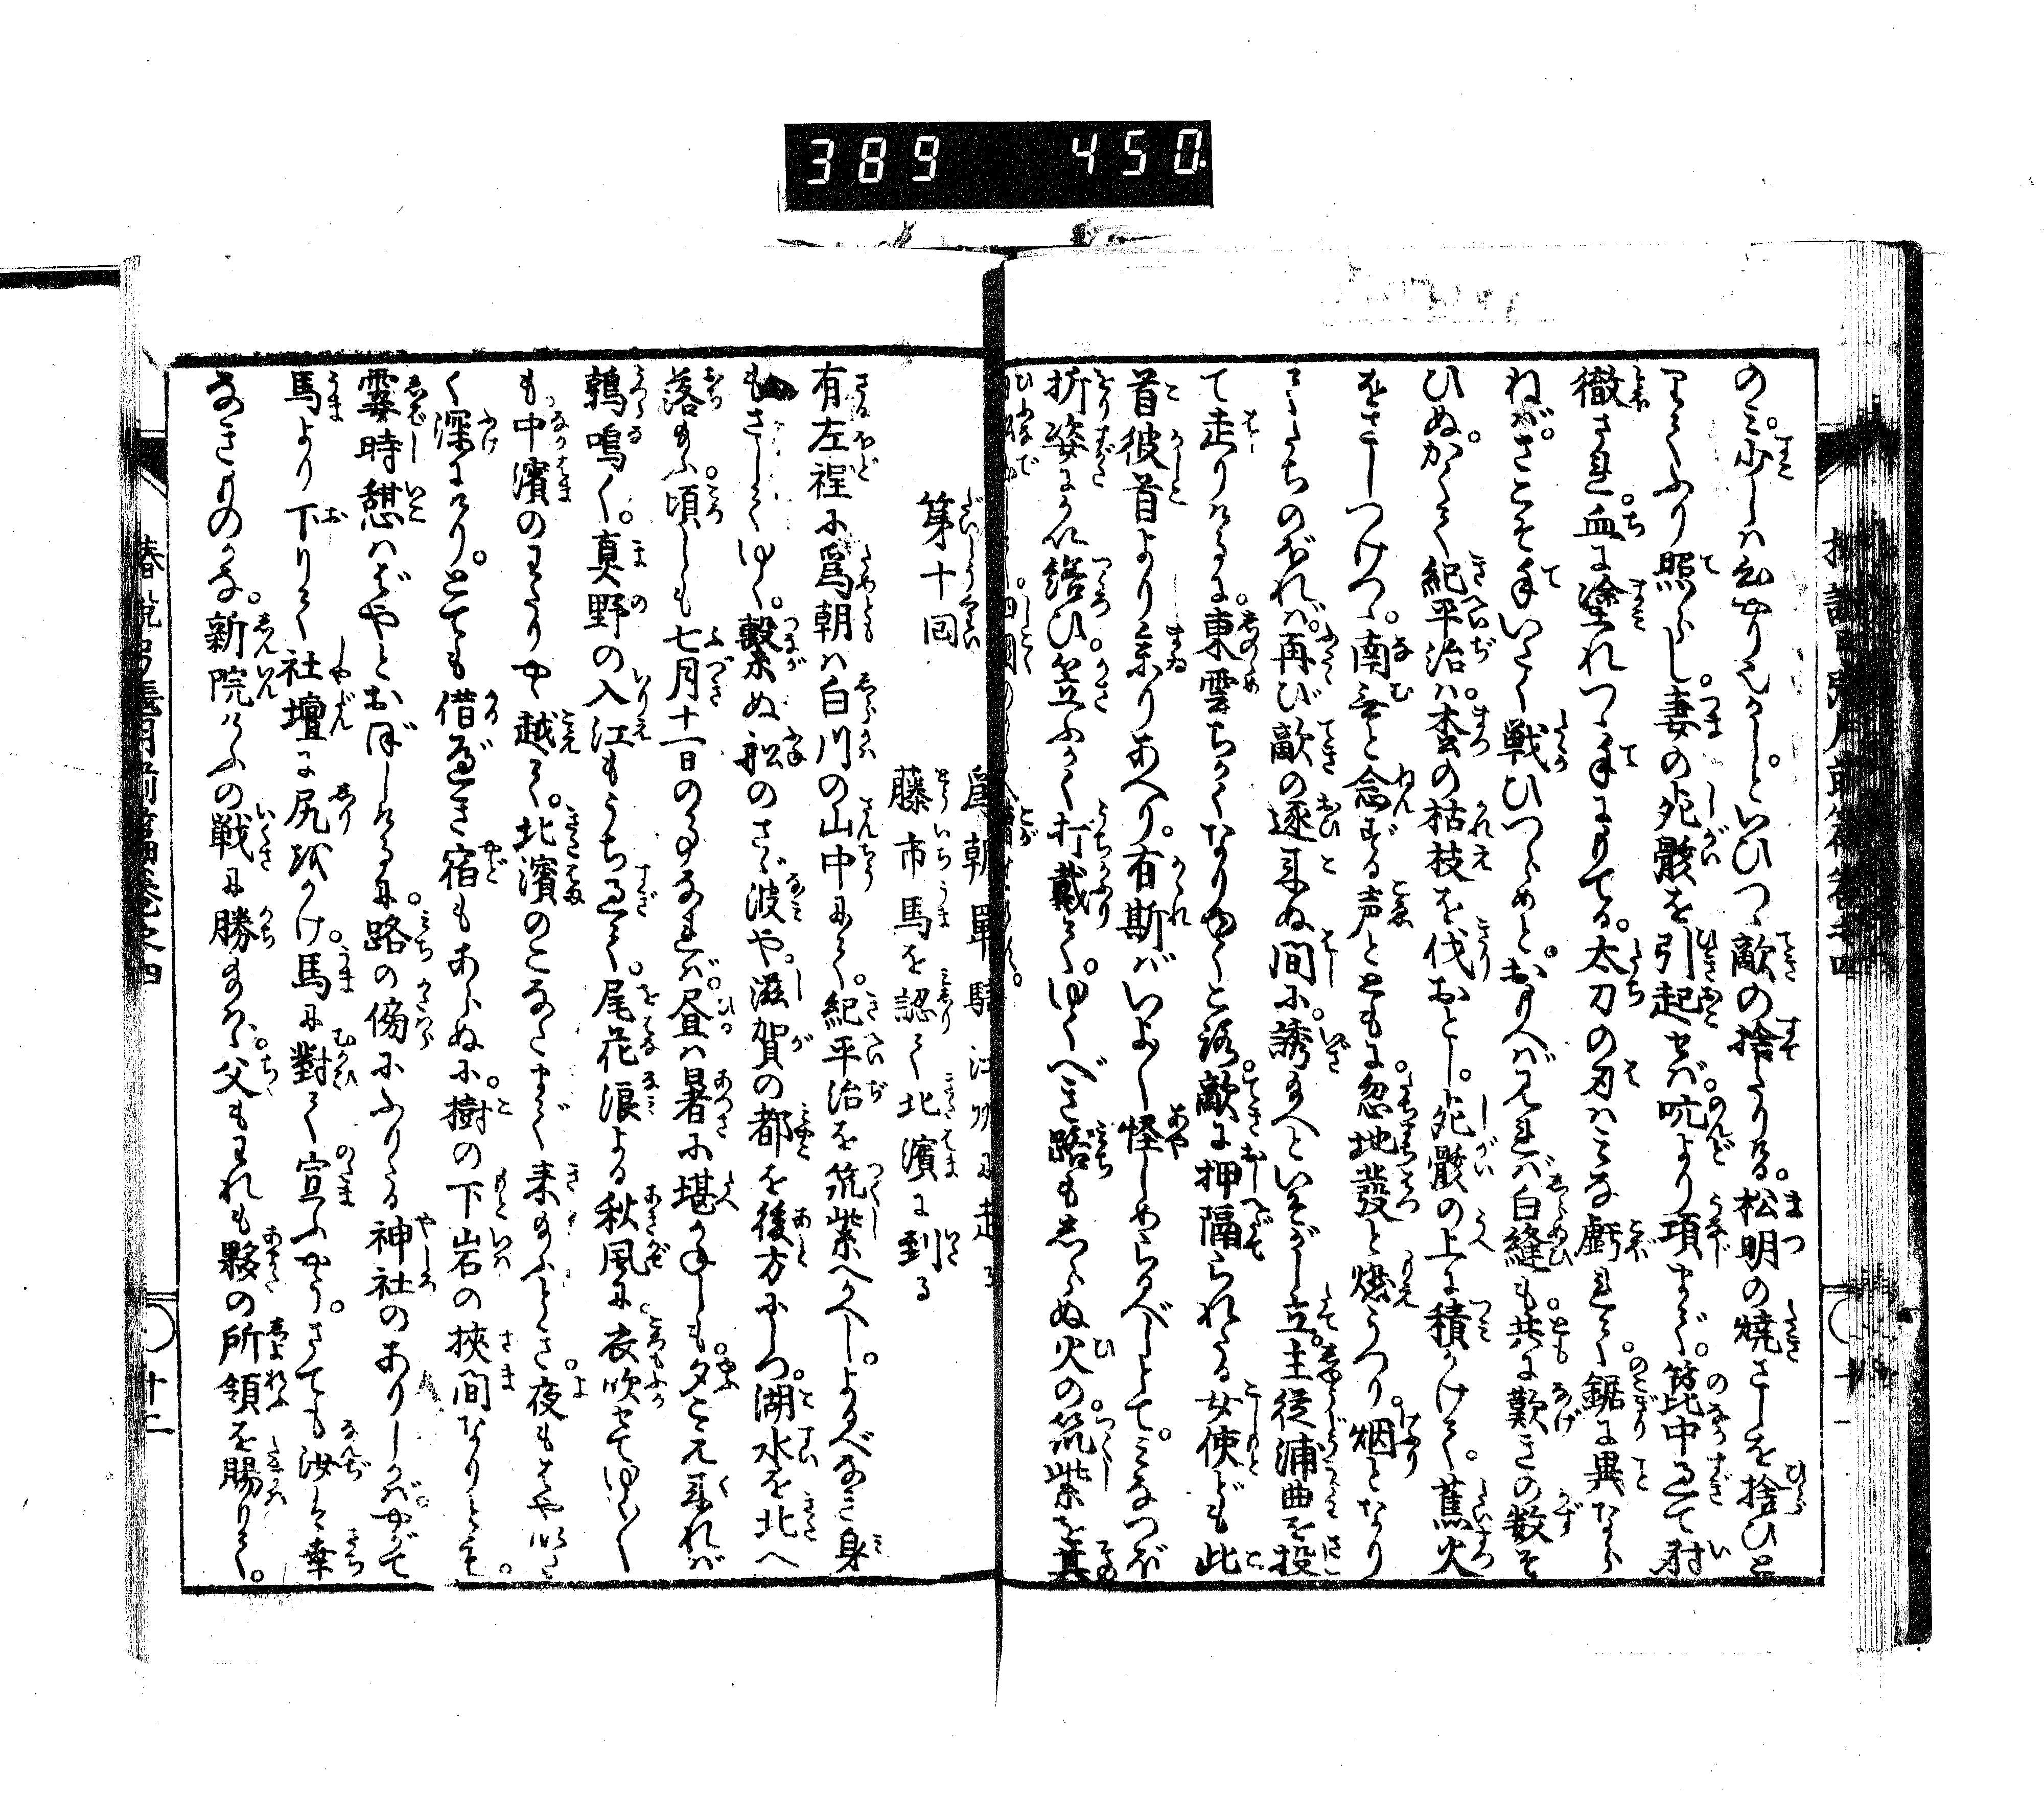 389 450
のミ。少しハ心やりえがしといひつゝ敵の捨たりける。松明の燒さしを捨ひと
りてふり照らし。妻の死骸を引起せば。吭より項まで。箆中過て射
徹され。血に塗れつゝ手にもてる。太刀の刃ハみな虧れて。鋸に異なら
ねば。さこそ手いたく戦ひつらめと。おもへばこれば白縫も。共に歎きの数そ
ひぬ。かくて紀平治ハ。松の枯枝を伐おとし。死骸の上に積かけて。蕉火
をさしつけつゝ。南無と念ずる声とともに。忽地發と燃うつり。烟となり
て立ちのぼれば。再び敵の逐来ぬ間に。誘給へといそがし立。主従浦曲を投
て走りけるに。東雲ちかくなりゆくころ。敵に押隔られたる女使ども此
首彼首より参りあへり。有斯バいよ〳〵怪しめらるべしとて。ミなつぼ
折姿にいで紿ひ。笠ふかく打戴て。ゆくべき路もしらぬ火の。筑紫を其
第十回
爲朝單騎江州に走る
藤市馬を認て北濱に到る
有左裎に爲朝ハ白川の山中にて。紀平治を筑紫へかへし。よるべなき身
もさしてゆく。繋ぬ舩のさゞ波や。滋賀の都を後方にしつ。湖水を北へ
落給ふ。頃しも七月十一日の事なれば。昼ハ暑に堪かねしも。夕こえ来れバ
鶉鳴く。真野の入江もうち過て。尾花浪よる秋風に。衣吹せてゆく〳〵
も中濱のわたりや越て。北濱のこなたまで来給ふとき。夜もはやいた
く深にけり。とても借るべき宿もあらぬに。樹の下岩の挾間なりとも。
霎時憇ハゞやとおぼしける時。路の傍にふりたる神社のありしかバ。やがて
馬より下りて社壇に尻をかけ。馬に對て宣ふやう。さても汝ハ幸
なきものかな。新院けふの戦に勝給ハゞ。父もわれも夥の所領を賜りて。
椿説弓張月前篇巻之四
十二